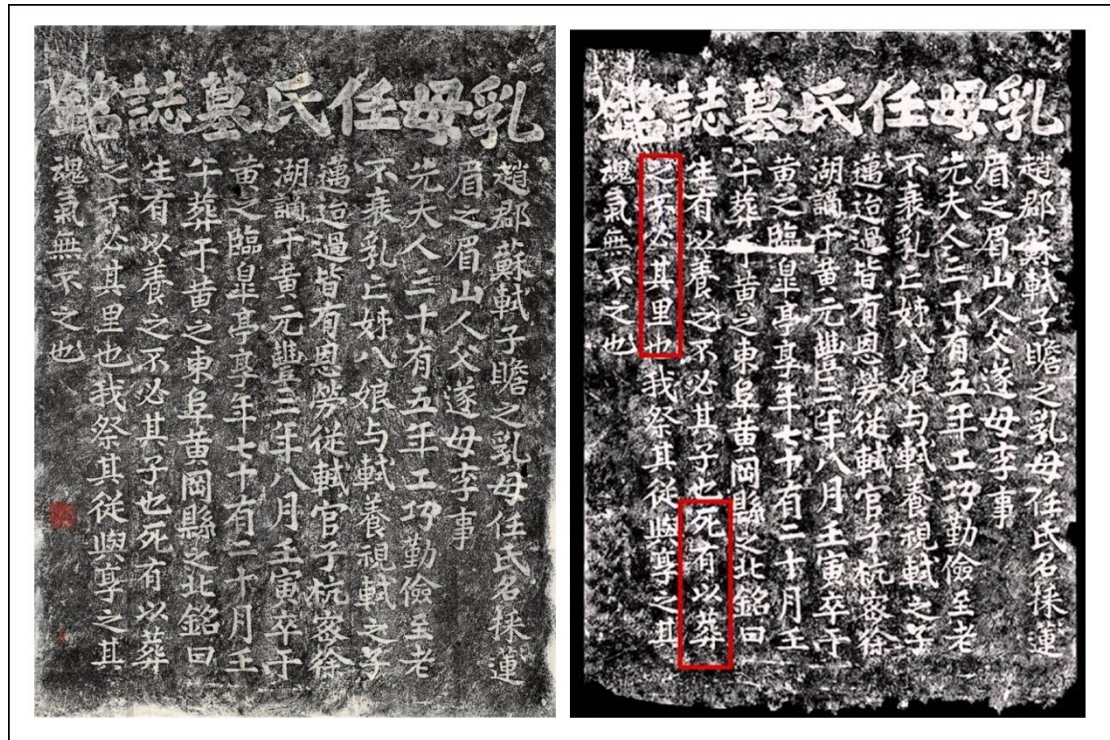 乳母任氏墓誌銘
趙郡蘇軾子瞻之乳母任氏名採蓮
眉之眉山人父遂母李事
先夫人三十有五年工巧勤儉至老
不衰乳亡姊八娘与軾養視軾之子
邁迨過皆有恩勞從軾官于杭密徐
湖謫于黃元豐三年八月壬寅卒于
黃之臨皐亭享年七十有二十月壬
午葬于黃之東阜黃岡縣之北銘曰
生有以養之不必其子也死有以葬
之不必其里也我祭其從與享之其
魂氣無不之也
乳母任氏墓誌銘
趙郡蘇軾子瞻之乳母任氏名採蓮
眉之眉山人父遂母李事
先夫人三十有五年工巧勤儉至老
不衰乳亡姊八娘与軾養視軾之子
邁迨過皆有恩勞從軾官于杭密徐
湖謫于黃元豐三年八月壬寅卒于
黃之臨皐亭享年七十有二十月壬
午葬于黃之東阜黃岡縣之北銘曰
生有以養之不必其子也死有以葬
之不必其里也我祭其從與享之其
魂氣無不之也